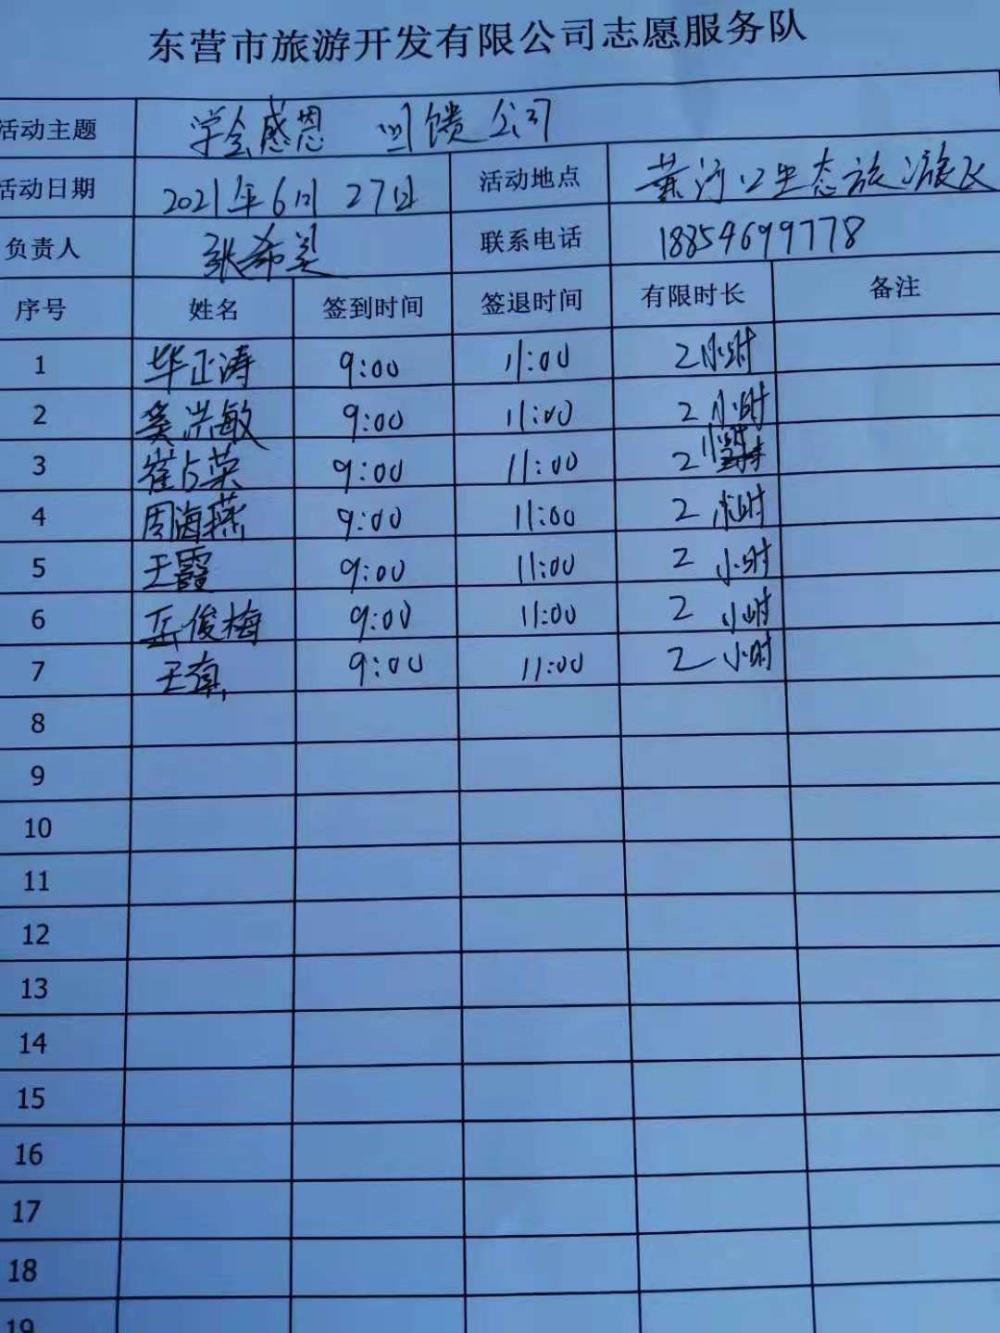 东营市旅游开发有限公司志愿服务队
活动主题 学会感恩 回馈公司
活动日期 2021年6月27日 活动地点 黄河口生态旅游区
负责人 张希美 联系电话 18854699778
序号 姓名 签到时间 签退时间 有限时长 备注
1 华正涛 9:00 11:00 2小时
2 洪敏 9:00 11:00 2小时
3 崔占荣 9:00 11:00 2小时
4 周海燕 9:00 11:00 2小时
5 王霞 9:00 11:00 2小时
6 岳俊梅 9:00 11:00 2小时
7 王 9:00 11:00 2小时
8
9
10
11
12
13
14
15
16
17
18
19